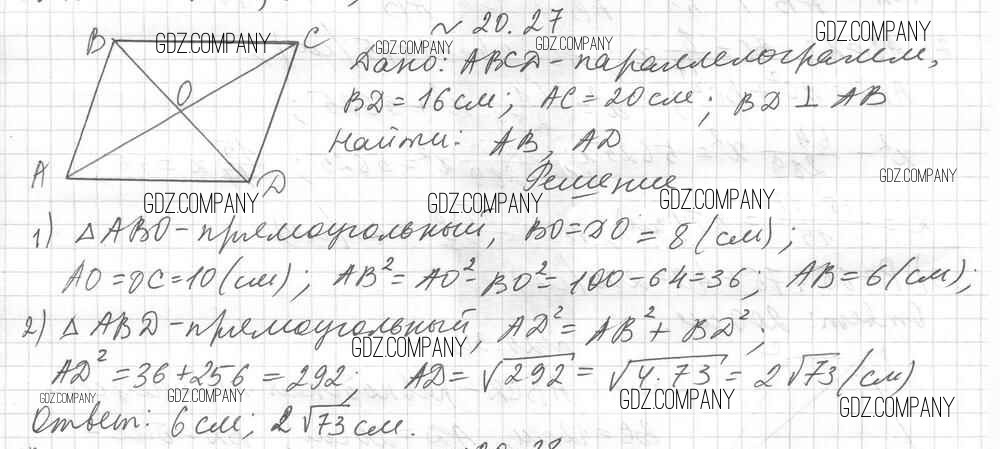 ~ 20.27
B C
O
A D
Дано: ABCD - параллелограмм,
BD = 16 см; AC = 20 см; BD ⊥ AB
Найти: AB, AD
Решение
1) △ ABO - прямоугольный, BO = DO = 8 (см);
AO = OC = 10 (см); AB² = AO² - BO² = 100 - 64 = 36; AB = 6 (см);
2) △ ABD - прямоугольный, AD² = AB² + BD²;
AD² = 36 + 256 = 292; AD = √292 = √4·73 = 2√73 (см)
Ответ: 6 см; 2√73 см.
GDZ.COMPANY
GDZ.COMPANY
GDZ.COMPANY
GDZ.COMPANY
GDZ.COMPANY
GDZ.COMPANY
GDZ.COMPANY
GDZ.COMPANY
GDZ.COMPANY
GDZ.COMPANY
GDZ.COMPANY
GDZ.COMPANY
GDZ.COMPANY